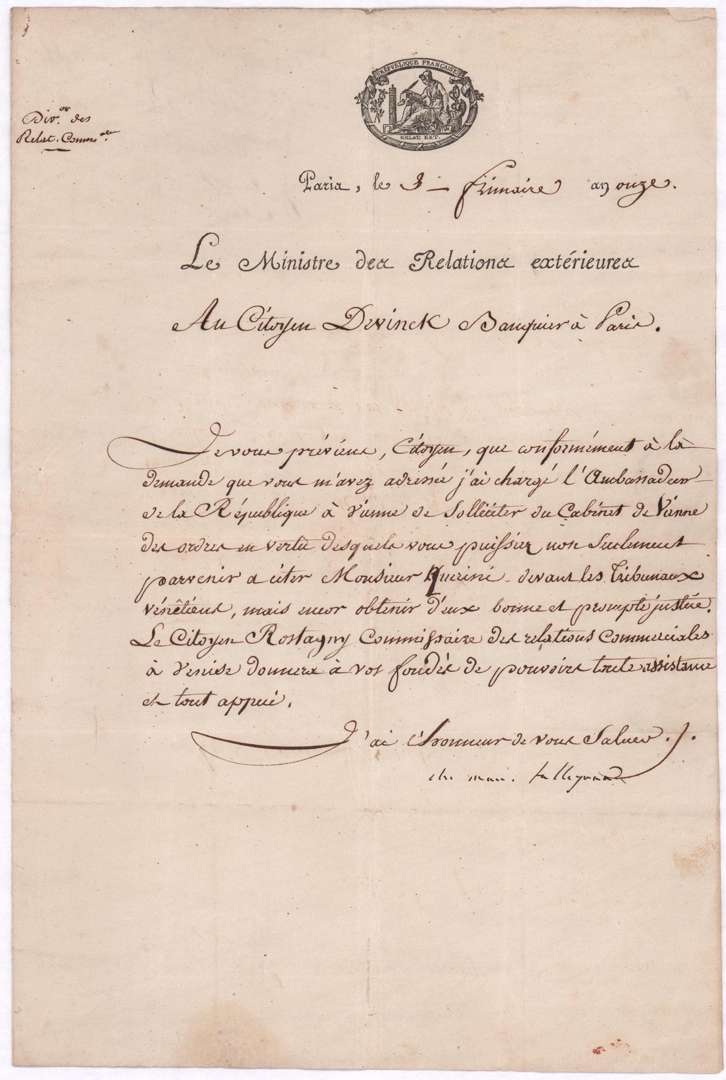 RÉPUBLIQUE FRANÇAISE
RELAT. EXT.
Div.on des
Relat. Comm.les
Paris, le 3 frimaire an onze.
Le Ministre des Relations extérieures
Au Citoyen Devinck Banquier à Paris.
Je vous préviens, Citoyen, que conformément à la
demande que vous m'avez adressée j'ai chargé l'Ambassadeur
de la République à Vienne de Solliciter du Cabinet de Vienne
des ordres en vertu desquels vous puissiez non seulement
parvenir a citer Monsieur Querini devant les Tribunaux
vénétiens, mais encor obtenir d'eux bonne et prompte justice.
Le Citoyen Rostagny Commissaire des relations Commerciales
à Venise donnera à vos fondés de pouvoirs toute assistance
et tout appui.
J'ai l'honneur de vous Saluer.
ch. mau. talleyrand